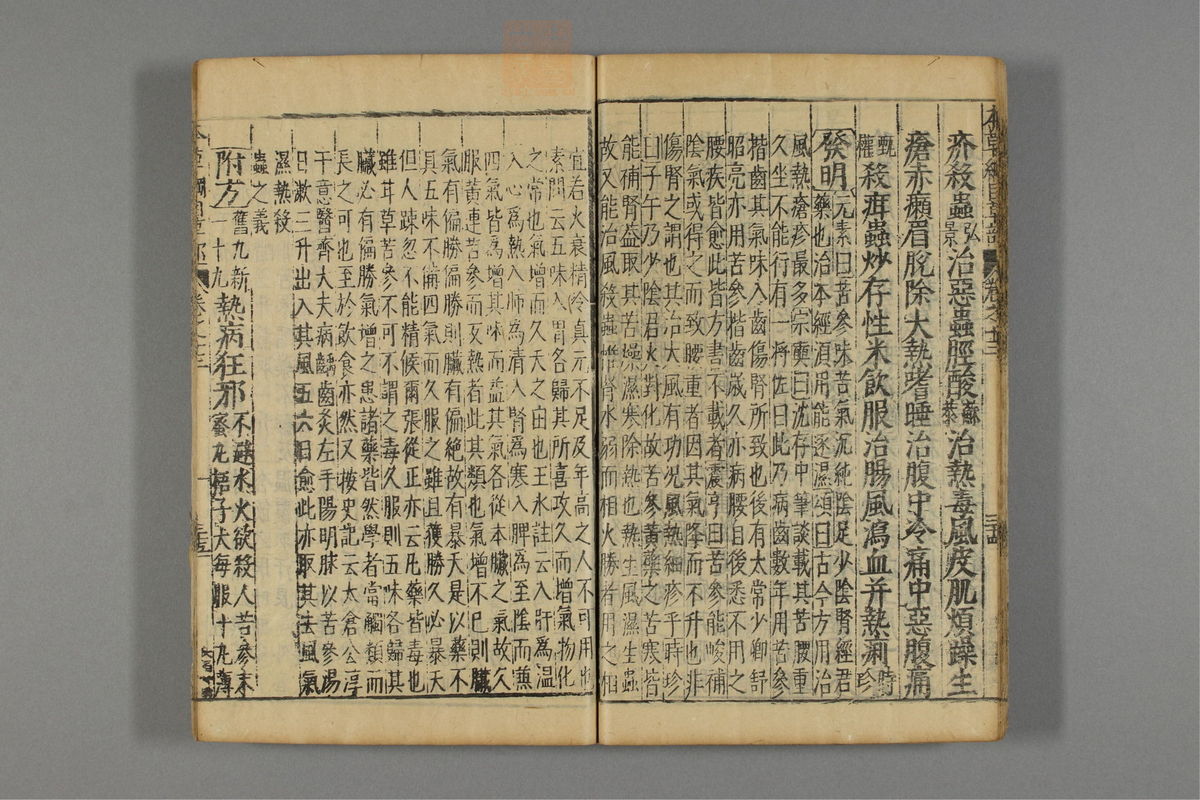 疥殺蟲弘景治惡蟲脛酸蘇恭治熱毒風皮肌煩躁生
瘡赤癩眉脫除大熱嗜睡治腹中冷痛中惡腹痛
甄權殺疳蟲炒存性米飲服治腸風瀉血并熱痢時珍
發明元素曰苦參味苦氣沉純陰足少陰腎經君
藥也治本經須用能逐濕頌曰古今方用治
風熱瘡疹最多宗奭曰沈存中筆談載其苦腰重
久坐不能行有一將佐曰此乃病齒數年用苦參
揩齒其氣味入齒傷腎所致也後有太常少卿舒
昭亮亦用苦參揩齒歲久亦病腰自後悉不用之
腰疾皆愈此皆方書不載者震亨曰苦參能峻補
陰氣或得之而致腰重者因其氣降而不升也非
傷腎之謂也其治大風有功況風熱細疹乎時珍
曰子午乃少陰君火對化故苦參黃蘗之苦寒皆
能補腎益取其苦燥濕寒除熱也熱生風濕生蟲
故又能治風殺蟲惟腎水弱而相火勝者用之相
宜若火衰精冷真元不足及年高之人不可用也
素問云五味入胃各歸其所喜攻久而增氣物化
之常也氣增而久夭之由也王冰註云入肝為溫
入心為熱入肺為清入腎為寒入脾為至陰而兼
四氣皆為增其味而益其氣各從本臟之氣故久
服黃連苦參而反熱者此其類也氣增不已則臟
氣有偏勝偏勝則臟有偏絕故有暴夭是以藥不
具五味不備四氣而久服之雖且獲勝久必暴夭
但人疎忽不能精候爾張從正亦云凡藥皆毒也
雖甘草苦參不可不謂之毒久服則五味各歸其
臟必有偏勝氣增之患諸藥皆然學者當觸類而
長之可也至於飲食亦然又按史記云太倉公淳
于意醫齊大夫病齲齒灸左手陽明脉以苦參湯
日漱三升出入其風五六日愈此亦取其去風氣
濕熱殺
蟲之義
附方舊九新一十九熱病狂邪不避水火欲殺人苦參末蜜丸梧子大每服十丸薄